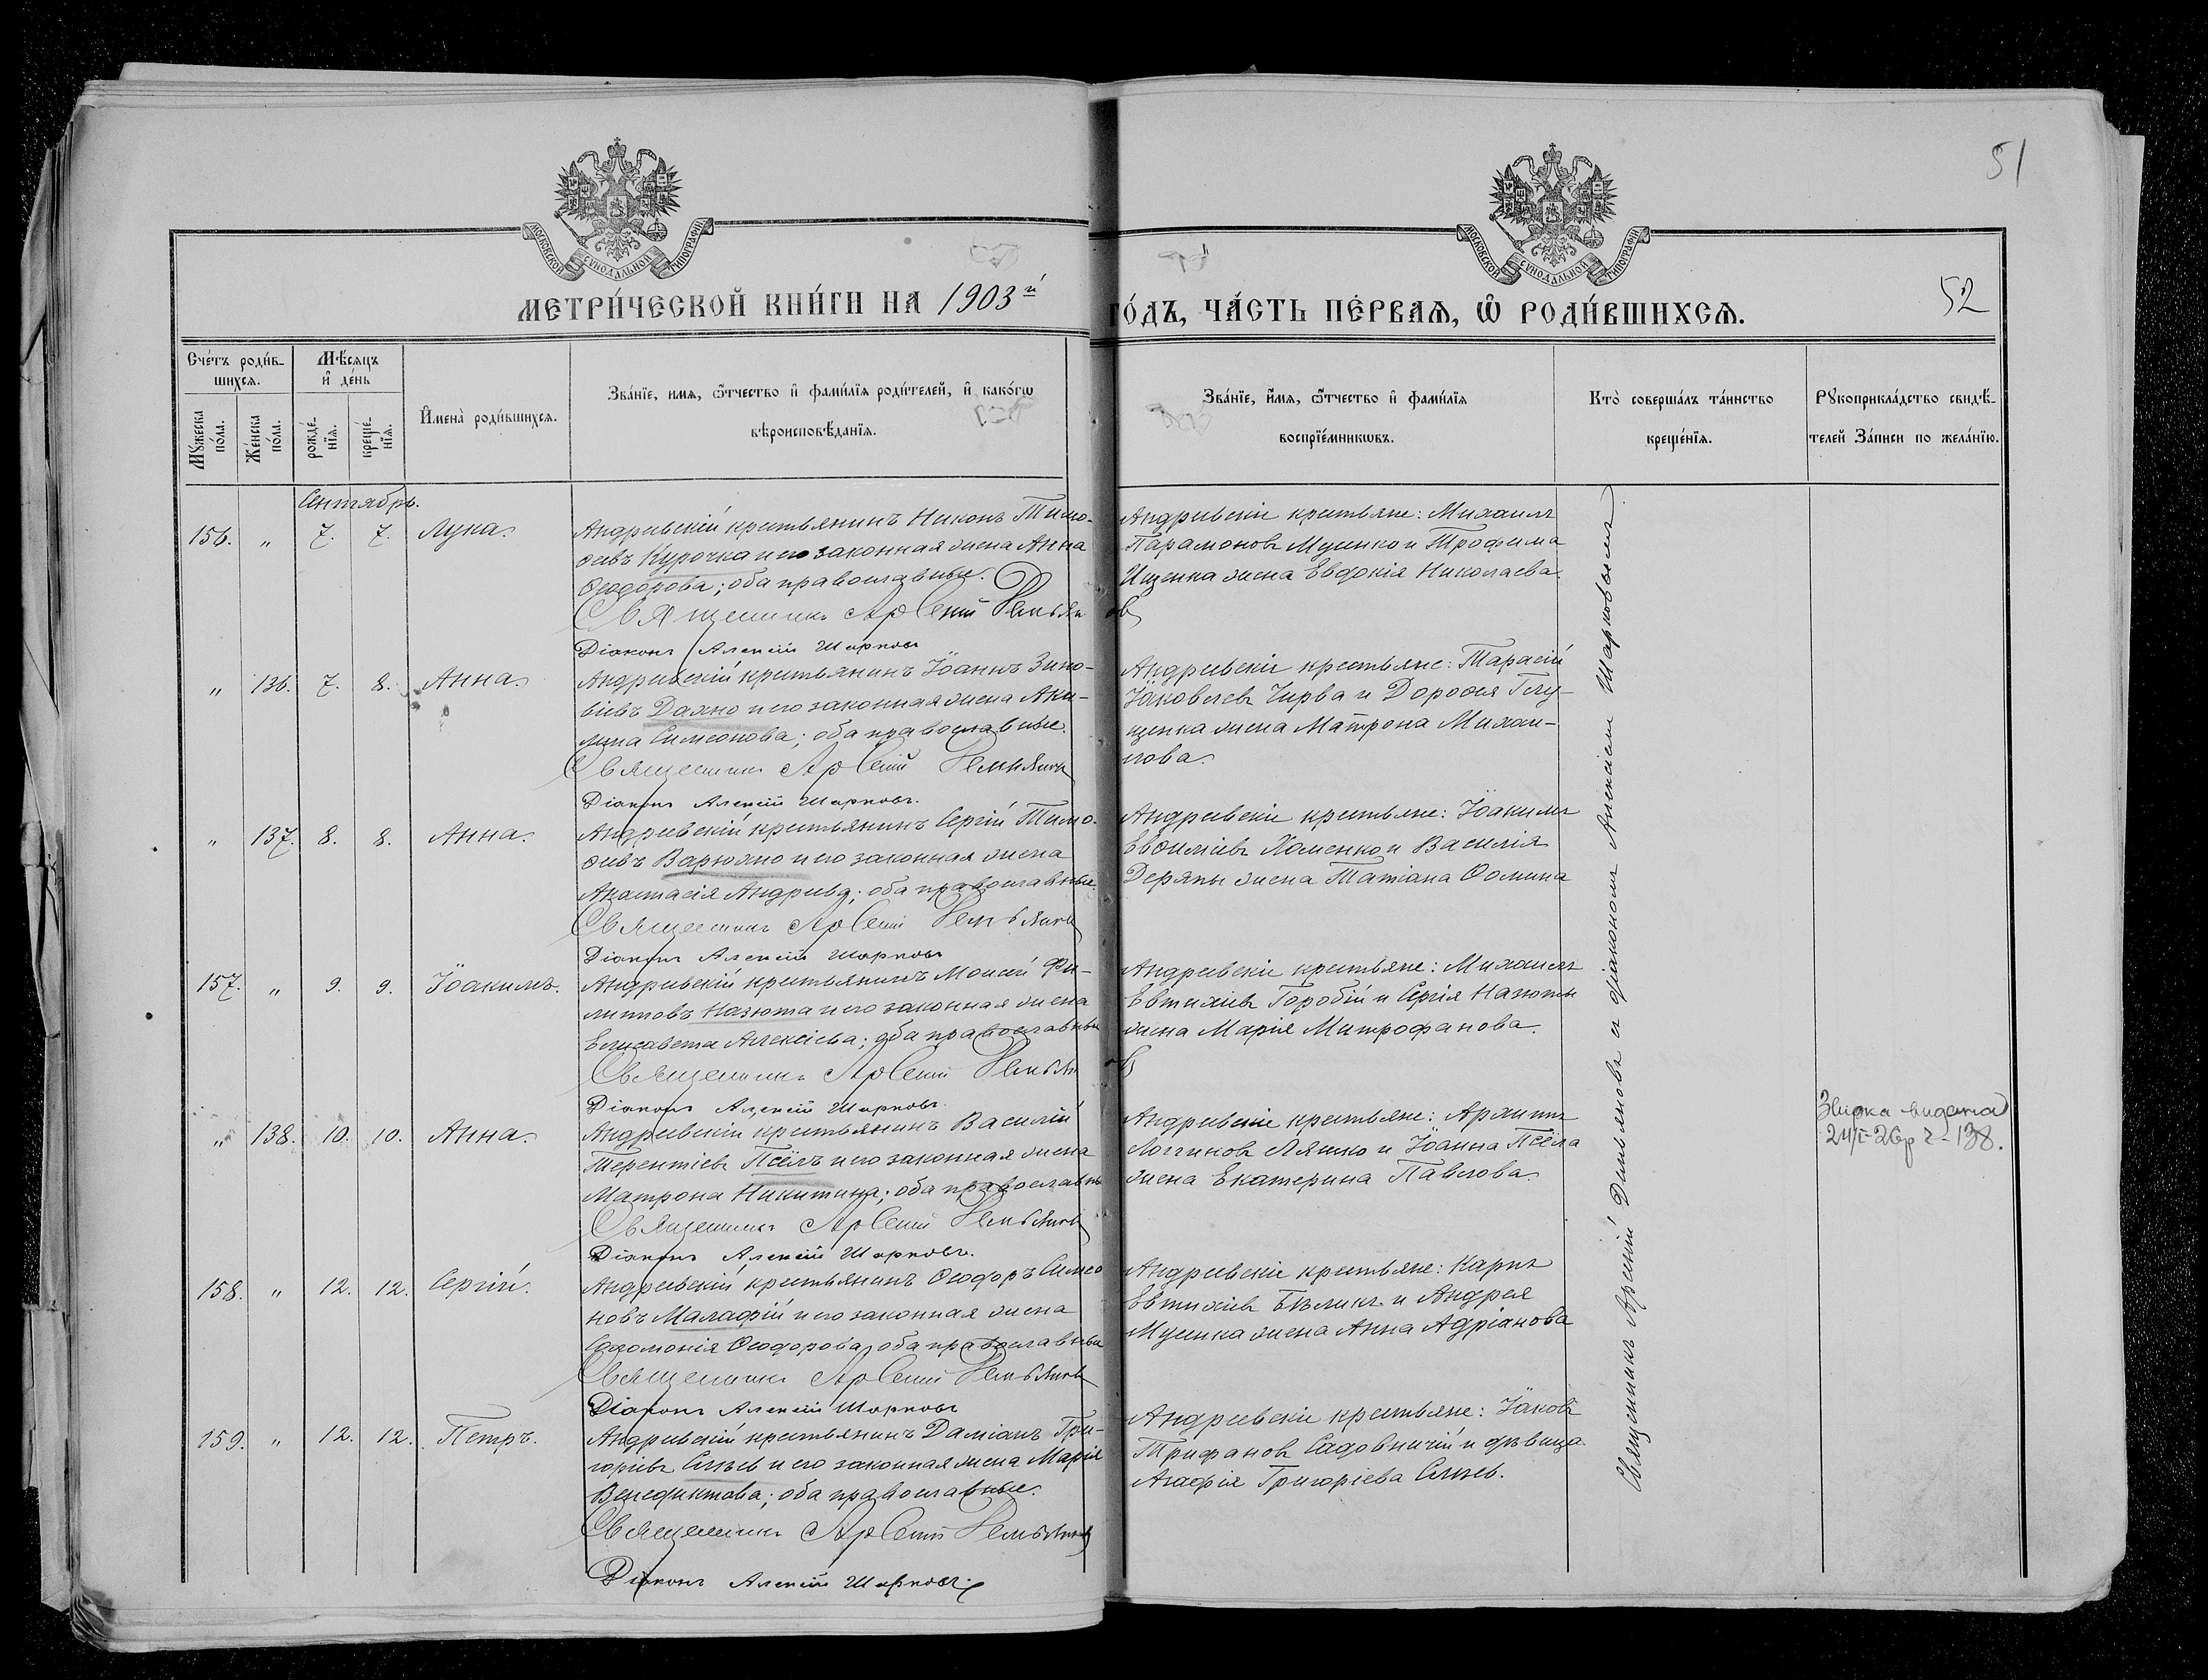 51
МОСКОВСКОЙ СѴНОДАЛЬНОЙ ТИПОГРАФІИ
МОСКОВСКОЙ СѴНОДАЛЬНОЙ ТИПОГРАФІИ
МЕТРИ́ЧЕСКОЙ КНИ́ГИ НА 1903й
ГО́ДЪ, ЧА́СТЬ ПЕ́РВАѦ, Ѿ РОДИ́ВШИХСѦ.
52
Сче́тъ роди́в-
шихсѧ.
Мꙋжеска по́ла.
Же́нска по́ла.
Мѣ́сѧцъ
и҆ де́нь
рожде́-
нїѧ.
креще́-
нїѧ.
И҆мена̀ роди́вшихсѧ.
Зва́нїе, имѧ, ѻ҆́тчество и҆ фами́лїѧ роди́телей, и҆ како́гѡ
вѣроисповѣ́данїѧ.
Зва́нїе, и҆́мѧ, ѻ҆́тчество и҆ фами́лїѧ
воспрїе́мникѡвъ.
Кто̀ соверша́лъ та́инство
креще́нїѧ.
Рꙋкоприкла́дство свидѣ́-
телей За́писи по жела́нїю.
Сентябрь.
156. " 7. 7. Лука.
Андреевскій крестьянинъ Никонъ Тимо-
ѳеевъ Курочка и его законная жена Анна
Ѳеодорова; оба православные.
Священникъ Арсеній Демьянов
Діаконъ Алексій Шарковъ
Андреевскіе крестьяне: Михаилъ
Парамоновъ Мушко и Трофима
Ищенка жена Евдокія Николаева.
" 136. 7. 8. Анна.
Андреевскій крестьянинъ Іоаннъ Зино-
віевъ Дахно и его законная жена Аки-
лина Симеонова; оба православные.
Священникъ Арсеній Демьянов
Діаконъ Алексій Шарковъ.
Андреевскіе крестьяне: Тарасій
Іаковлевъ Чирва и Дороѳея Глу-
щенка жена Матрона Михаи-
лова.
" 137. 8. 8. Анна.
Андреевскій крестьянинъ Сергій Тимо-
ѳеевъ Варюхно и его законная жена
Анастасія Андреева; оба православные.
Священникъ Арсеній Демьянов
Діаконъ Алексій Шарковъ
Андреевскіе крестьяне: Іоакимъ
Евѳиміевъ Хоменко и Василія
Деряпы жена Татіана Ѳомина
157. " 9. 9. Іоакимъ.
Андреевскій крестьянинъ Моисей Фи-
липповъ Назюта и его законная жена
Елисавета Алексіева; оба православные
Священникъ Арсеній Демьянов
Діаконъ Алексій Шарковъ.
Андреевскіе крестьяне: Михаилъ
Евтихіевъ Горобій и Сергія Назюты
жена Марія Митрофанова.
" 138. 10. 10. Анна.
Андреевскій крестьянинъ Василій
Терентіевъ Псёлъ и его законная жена
Матрона Никитина; оба православны
Священникъ Арсеній Демьянов
Діаконъ Алексій Шарковъ.
Андреевскіе крестьяне: Архиппъ
Логгиновъ Ляшко и Іоанна Псёла
жена Екатерина Павлова.
Звірка видана
138.
158. " 12. 12. Сергій.
Андреевскій крестьянинъ Ѳеодоръ Симео
новъ Малафій и его законная жена
Соломонія Ѳеодорова; оба православные
Священникъ Арсеній Демьянов
Діаконъ Алексій Шарковъ
Андреевскіе крестьяне: Карпъ
Евтихіевъ Бѣликъ и Андрея
Мушка жена Анна Адріанова
159. " 12. 12. Петръ.
Андреевскій крестьянинъ Даміанъ Гри-
горіевъ и его законная жена Марія
Венедиктова; оба православные.
Священникъ Арсеній Демьянов
Діаконъ Алексій Шарковъ.
Андреевскіе крестьяне: Іаковъ
Трифановъ Садовничій и дѣвица
Агафія Григоріева
Священникъ Арсеній Демьяновъ съ діакономъ Алексіемъ Шарковымъ.